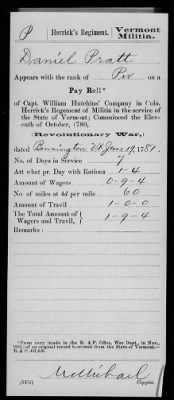 P
Herrick's Regiment.
Vermont
Militia.
Daniel Pratt
Appears with the rank of Pri on a
Pay Roll*
of Capt. William Hutchins' Company in Colo.
Herrick's Regement of Militia in the service of
the State of Verm-ut; Commincd the Elev-
enth of October, 1780,
(Revolutionary War,)
dated Bennington Vt June 19, 1781.
No. of Days in Service 7
Att what pr. Day with Rations 1-4
Amount of Wagers 0-9-4
No. of miles at 4d per mile 60
Amount of Travil 1-0-0
The Total Amount of
Wagers and Travil, 1-9-4
Remarks:
*From very tards in the R. & P. Office, War Dept., in Nov.,
to original record borrowed from the State of Vermont—
R. & P.
Copyist.